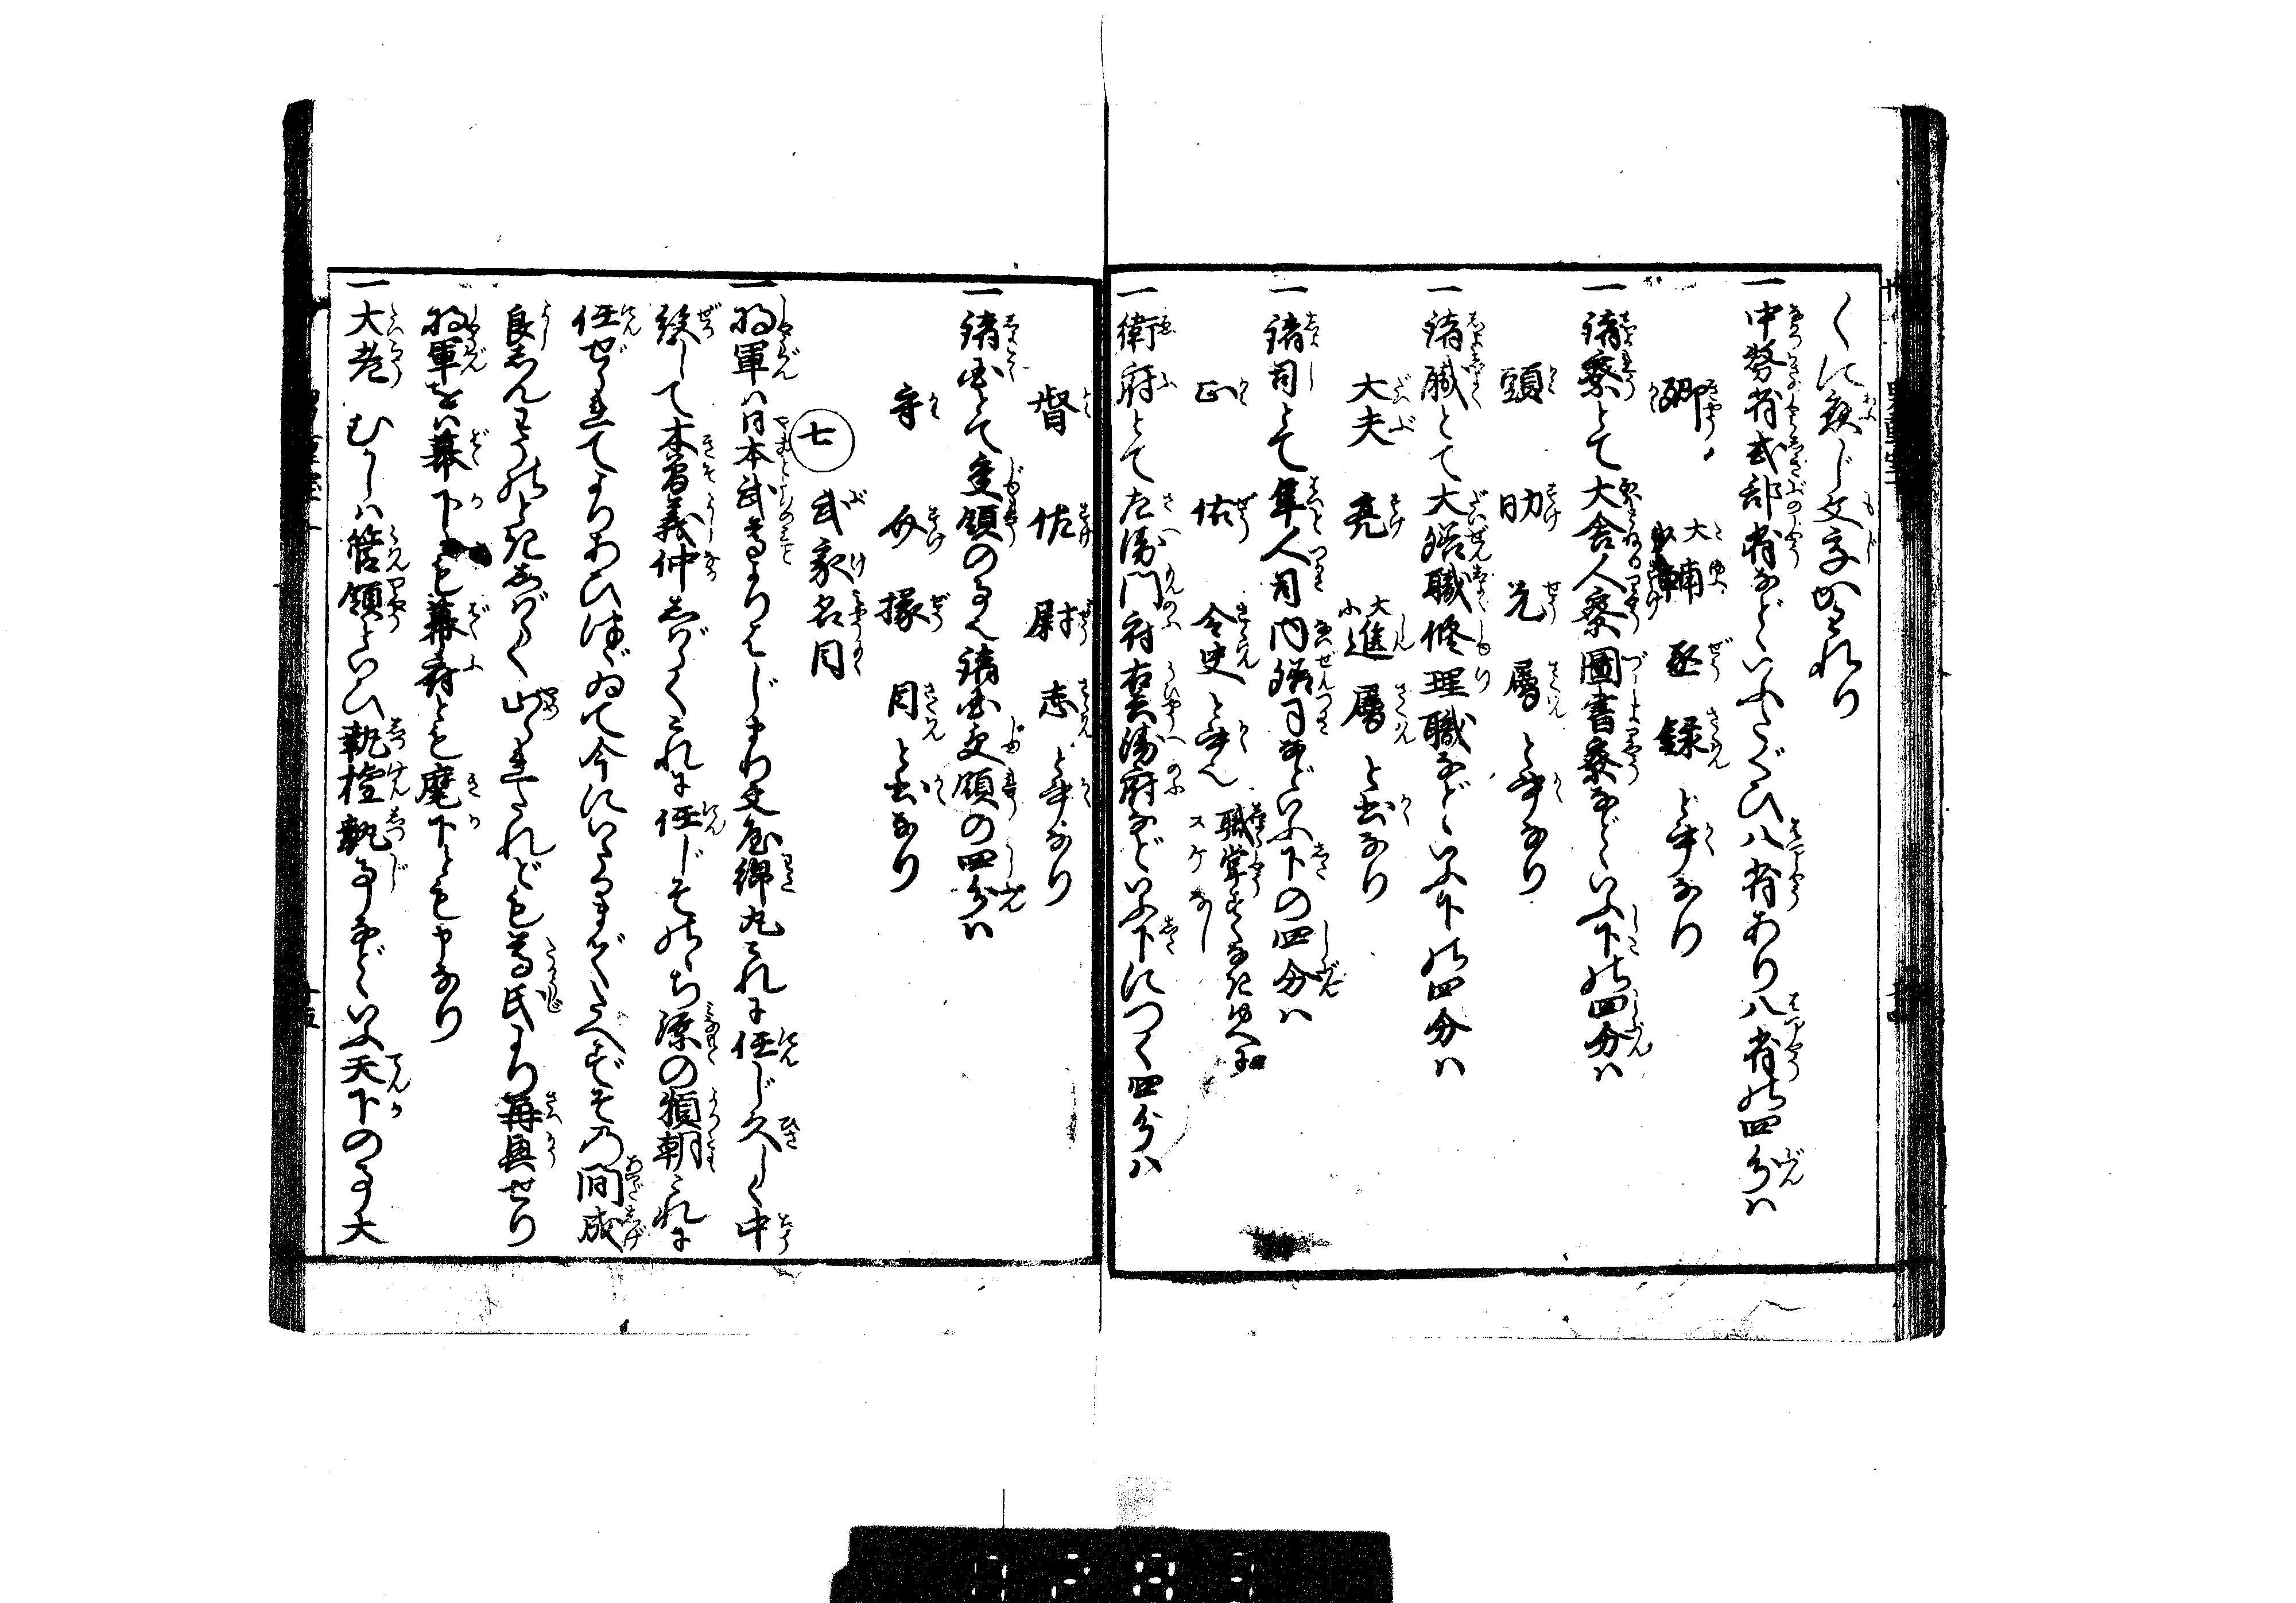 くに応じ文字かはれり
一中務省式部省などゝいふたぐひ八省あり八省の四分ハ
卿 大輔 少輔 丞 録 と書なり
一諸寮とて大舎人寮圖書寮などゝいふ下の四分ハ
頭 助 允 属 と書なり
一諸職とて大膳職修理職などゝいふ下の四分ハ
大夫 亮 大進 小進 属 と書なり
一諸司とて隼人司内膳司などいふ下の四分ハ
正 佑 令史 と書く 職掌すくなきゆへに スケなし
一衛府とて左衛門府右兵衛府などいふ下につく四分ハ
督 佐 尉 志 と書なり
一諸国とて受領の事也諸国受領の四分ハ
守 介 掾 目 と書なり
七 武家名目
一将軍ハ日本武尊よりはじまり文屋綿丸これに任じ久しく中
絶して木曽義仲しばらくこれに任じそのゝち源の頼朝これに
任ぜられてよりあひつゞゐて今にいたるまでたへずその間成
良しんわうのときしばらく止られたれども尊氏より再興せり
将軍をハ幕下とも幕府とも麾下とも申なり
一大老 むかしハ管領といひ執権執事などゝいふ天下の事大